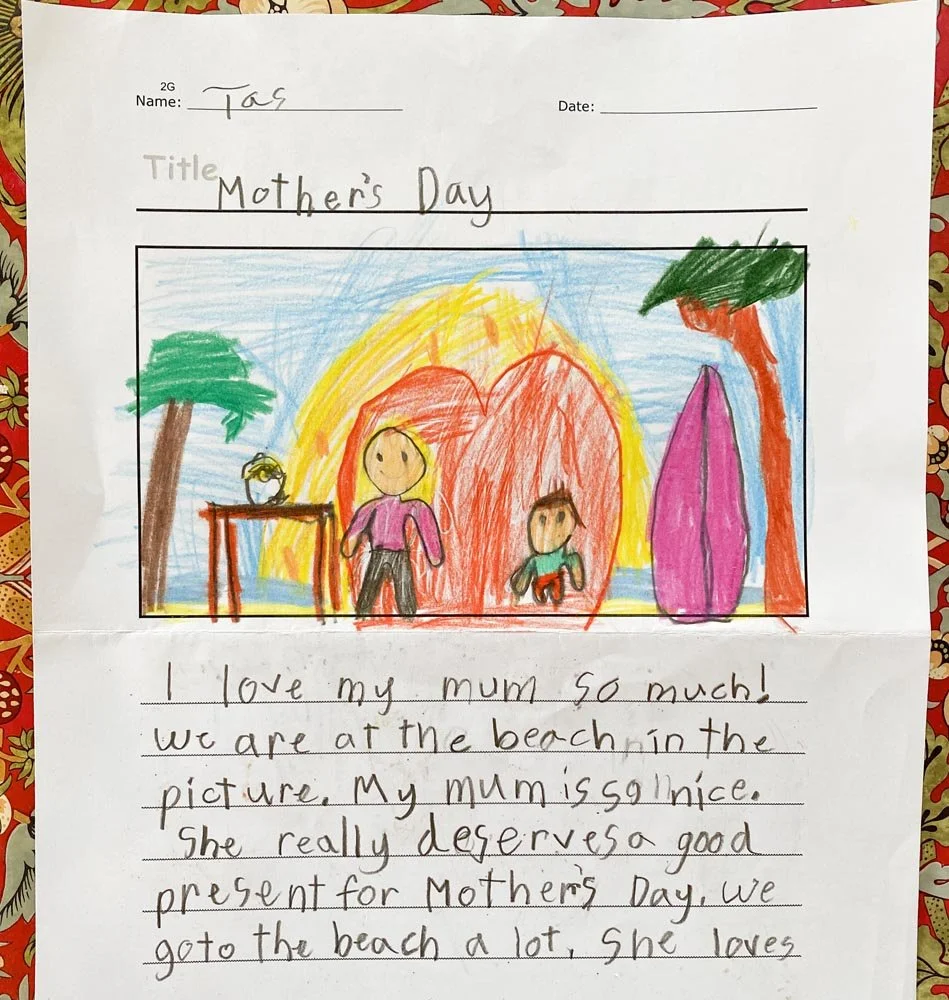 2G
Name: Tas
Date:
Title
Mother's Day
I love my mum so much!
we are at the beach in the
picture. My mum is so nice.
She really deserves a good
present for Mother's Day. we
go to the beach a lot. She loves